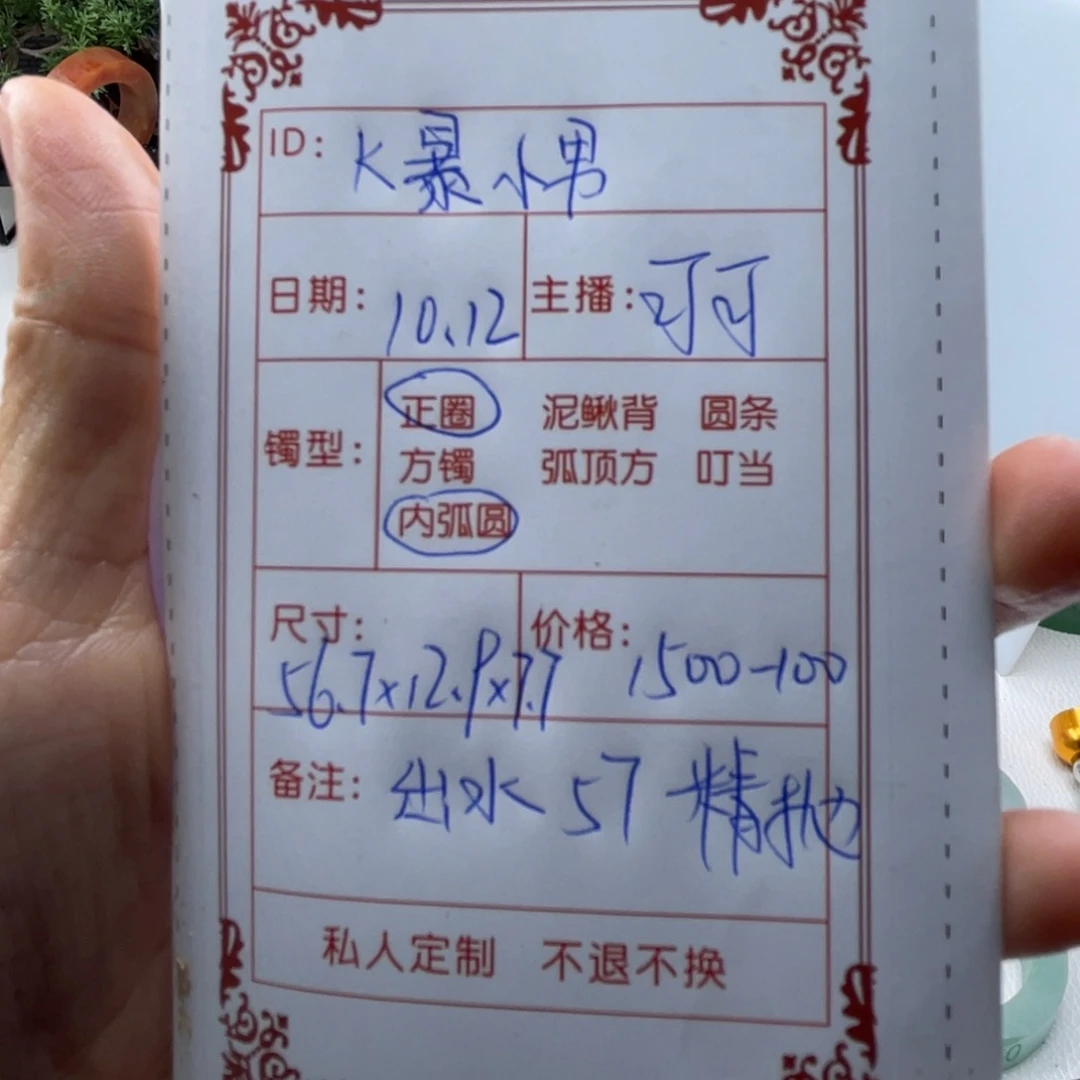 ID: K暴小男
日期: 10.12 主播: 可可
镯型: 正圈 泥鳅背 圆条
方镯 弧顶方 叮当
内弧圆
尺寸: 56.7×12.9×7.7 价格: 1500-100
备注: 出水 57 精抛
私人定制 不退不换